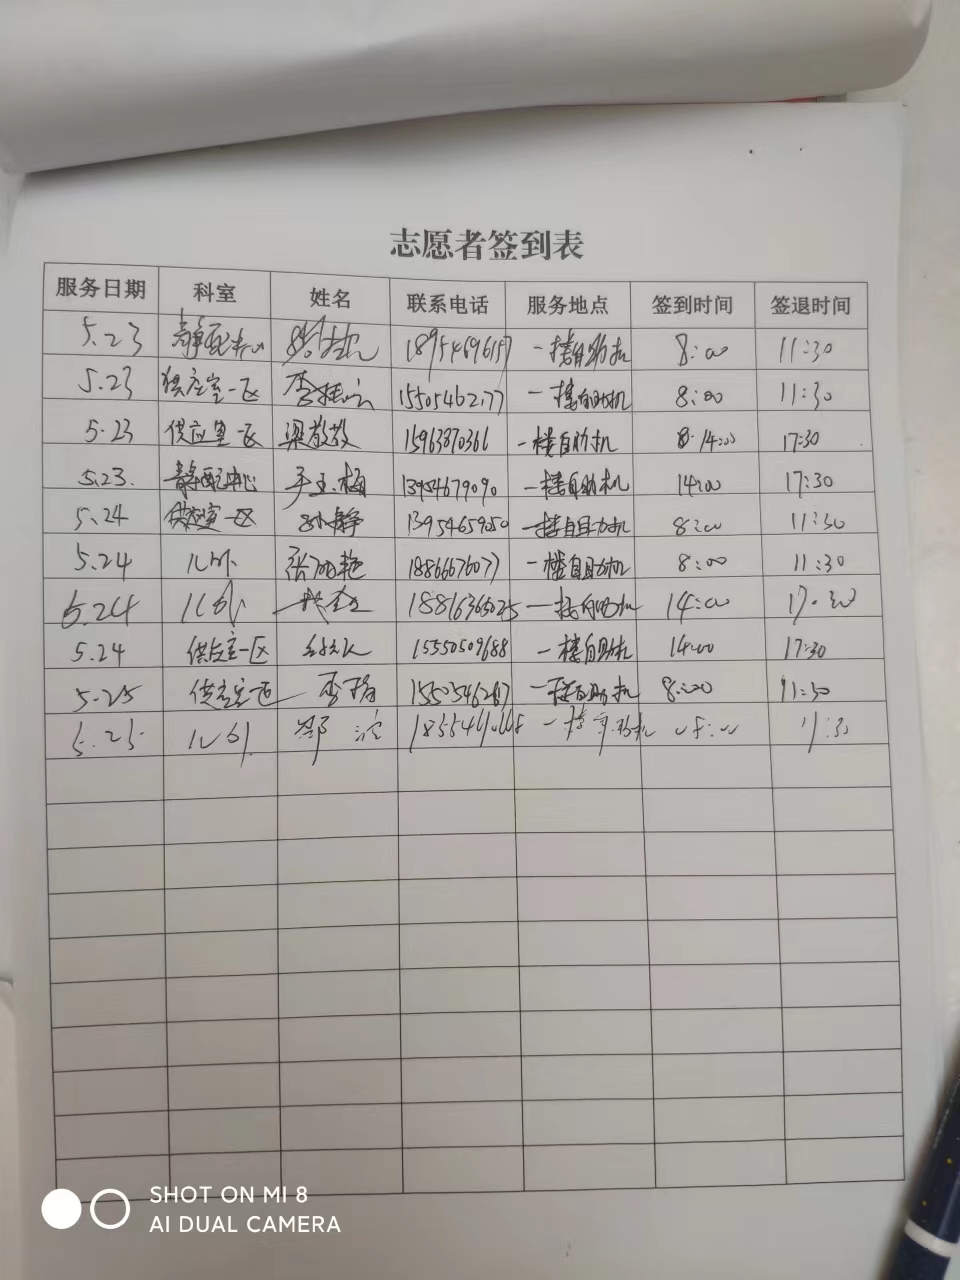 志愿者签到表
服务日期 科室 姓名 联系电话 服务地点 签到时间 签退时间
5.23 静配中心 18954696157 一楼自助机 8:00 11:30
5.23 供应室一区 15505462177 一楼自助机 8:00 11:30
5.23 供应室一区 梁敬敬 15963870366 一楼自助机 8:14:00 17:30
5.23. 静配中心 于玉梅 13954679090 一楼自助机 14:00 17:30
5.24 供应室一区 静 13954659050 一楼自助机 8:00 11:30
5.24 儿外 张 艳 18866676077 一楼自助机 8:00 11:30
5.24 儿外 18816365025 一楼自助机 14:00 17:30
5.24 供应室一区 15550509688 一楼自助机 14:00 17:30
5.25 供应室一区 李 一楼自助机 8:00 11:30
5.25 儿外 一楼自助机 11:30
SHOT ON MI 8
AI DUAL CAMERA